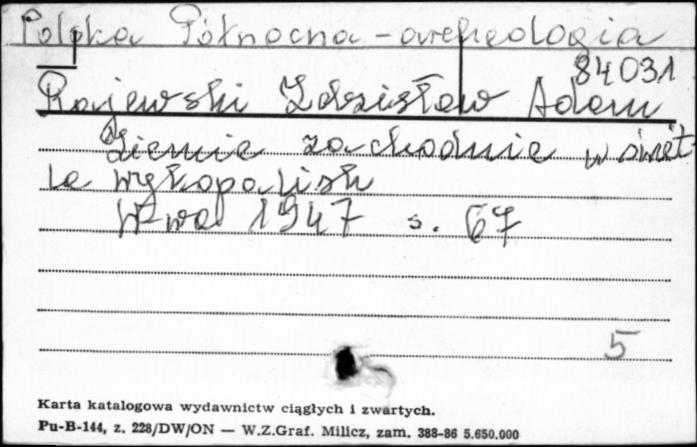 Polska Północna - archeologia
84031
Rajewski Zdzisław Adam
Ziemie zachodnie w świet-
le wykopalisk
W-wa 1947 s. 67
5
Karta katalogowa wydawnictw ciągłych i zwartych.
Pu-B-144, z. 228/DW/ON — W.Z.Graf. Milicz, zam. 388-86 5.650.000